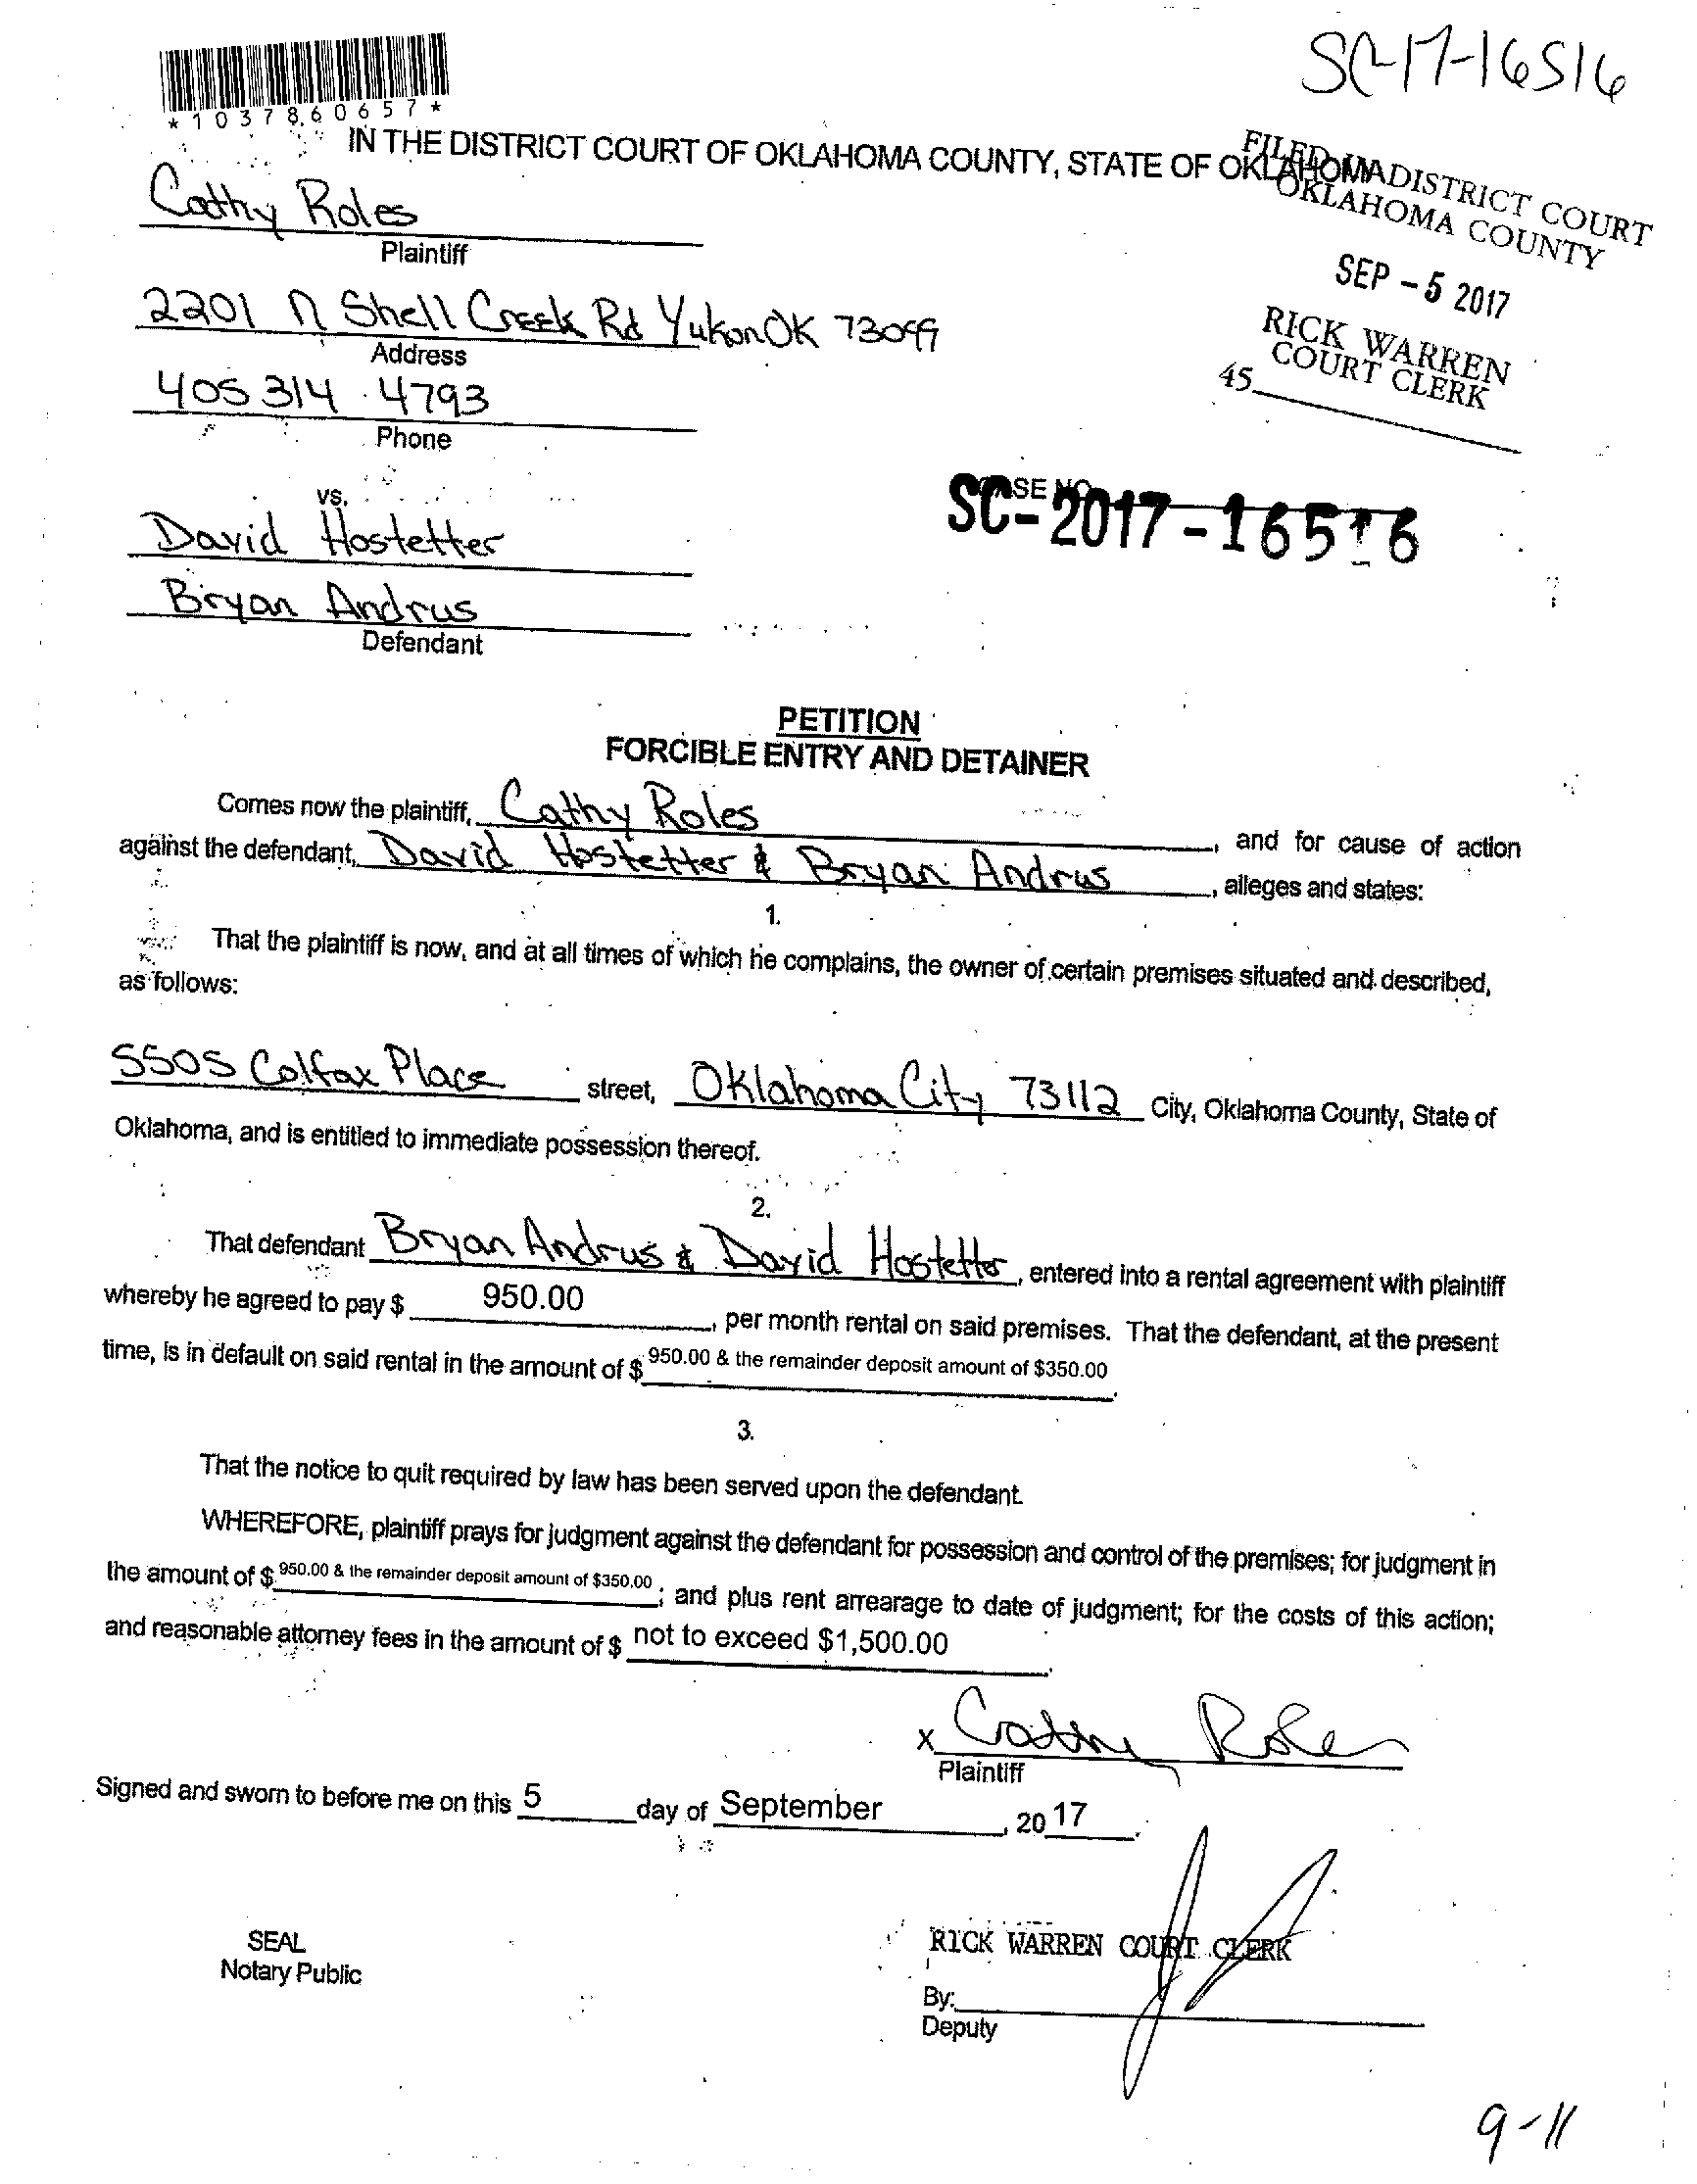 SC-17-16516
*1037860657*
IN THE DISTRICT COURT OF OKLAHOMA COUNTY, STATE OF OKLAHOMA
FILED IN DISTRICT COURT
OKLAHOMA COUNTY
Cathy Roles
Plaintiff
SEP - 5 2017
2201 N Shell Creek Rd Yukon OK 73099
Address
RICK WARREN
COURT CLERK
45
405 314 4793
Phone
vs.
CASE NO.
SC-2017-16516
David Hostetter
Bryan Andrus
Defendant
PETITION
FORCIBLE ENTRY AND DETAINER
Comes now the plaintiff, Cathy Roles, and for cause of action
against the defendant, David Hostetter & Bryan Andrus, alleges and states:
1.
That the plaintiff is now, and at all times of which he complains, the owner of certain premises situated and described,
as follows:
5505 Colfax Place street, Oklahoma City 73112 City, Oklahoma County, State of
Oklahoma, and is entitled to immediate possession thereof.
2.
That defendant Bryan Andrus & David Hostetter, entered into a rental agreement with plaintiff
whereby he agreed to pay $ 950.00, per month rental on said premises. That the defendant, at the present
time, is in default on said rental in the amount of $ 950.00 & the remainder deposit amount of $350.00.
3.
That the notice to quit required by law has been served upon the defendant.
WHEREFORE, plaintiff prays for judgment against the defendant for possession and control of the premises; for judgment in
the amount of $ 950.00 & the remainder deposit amount of $350.00; and plus rent arrearage to date of judgment; for the costs of this action;
and reasonable attorney fees in the amount of $ not to exceed $1,500.00.
x Cathy Roles
Plaintiff
Signed and sworn to before me on this 5 day of September, 20 17.
SEAL
Notary Public
RICK WARREN COURT CLERK
By:
Deputy
9-11